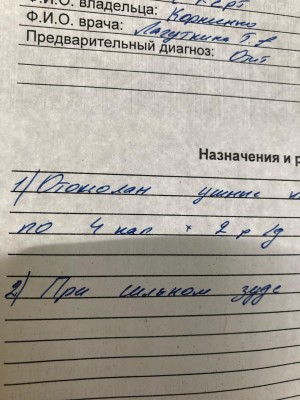 Ф.И.О. владельца: Корниенко
Ф.И.О. врача: Лагуткина Т.
Предварительный диагноз: Отит
Назначения и р
1) Отоколан ушные к
по 4 кап * 2 р/д
2) При сильном зуде